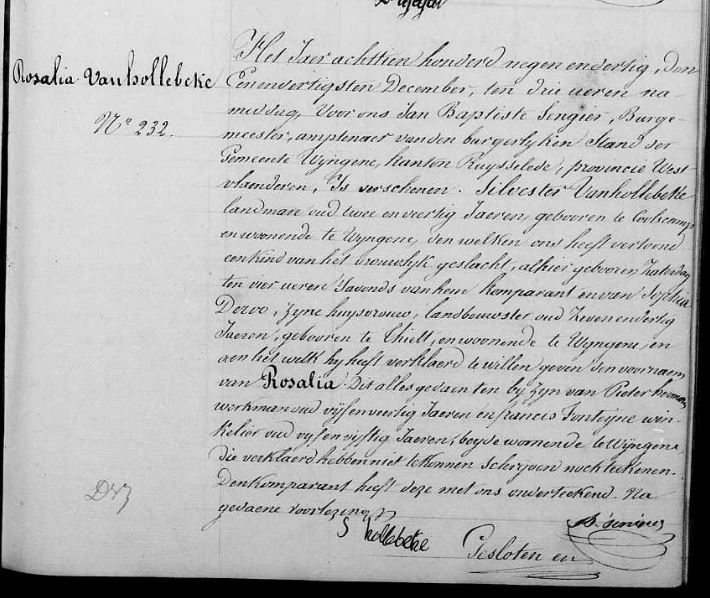 Rosalia Vanhollebeke
N° 232.
Het Jaer achttien honderd negen endertig, den
Eenendertigsten December, ten drie ueren na-
middag, Voor ons Jan Baptiste Sengier, Burge-
meester, amptenaer van den burgerlyken Stand der
Gemeente Wyngene, kanton Ruysselede, provincie West
vlaenderen, Is verschenen. Silvester Vanhollebeke
landman oud twee enviertig Jaeren, gebooren te Coolscamp
en woonende te Wyngene, den welken ons heeft vertoond
een kind van het vrouwlyk geslacht, alhier gebooren Zaterdag
ten vier ueren Savonds van hem komparant en van Sophia
Dervo, Zyne huysvrouw, landbouwster oud Zeven endertig
Jaeren, gebooren te Thielt, en woonende te Wyngene, en
aen het welk hy heeft verklaerd te willen geven den voornaem
van Rosalia. Dit alles gedaen ten by Zyn van Pieter
werkman oud vyf enveertig Jaeren en francis Fonteyne win-
kelier oud vyf envyftig Jaeren, beyde woonende te Wyngene
die verklaerd hebben niet te konnen Schryven noch teekenen.
Den komparant heeft deze met ons onderteekend. Na
gedaene voorlezing
S hollebeke
Gesloten en